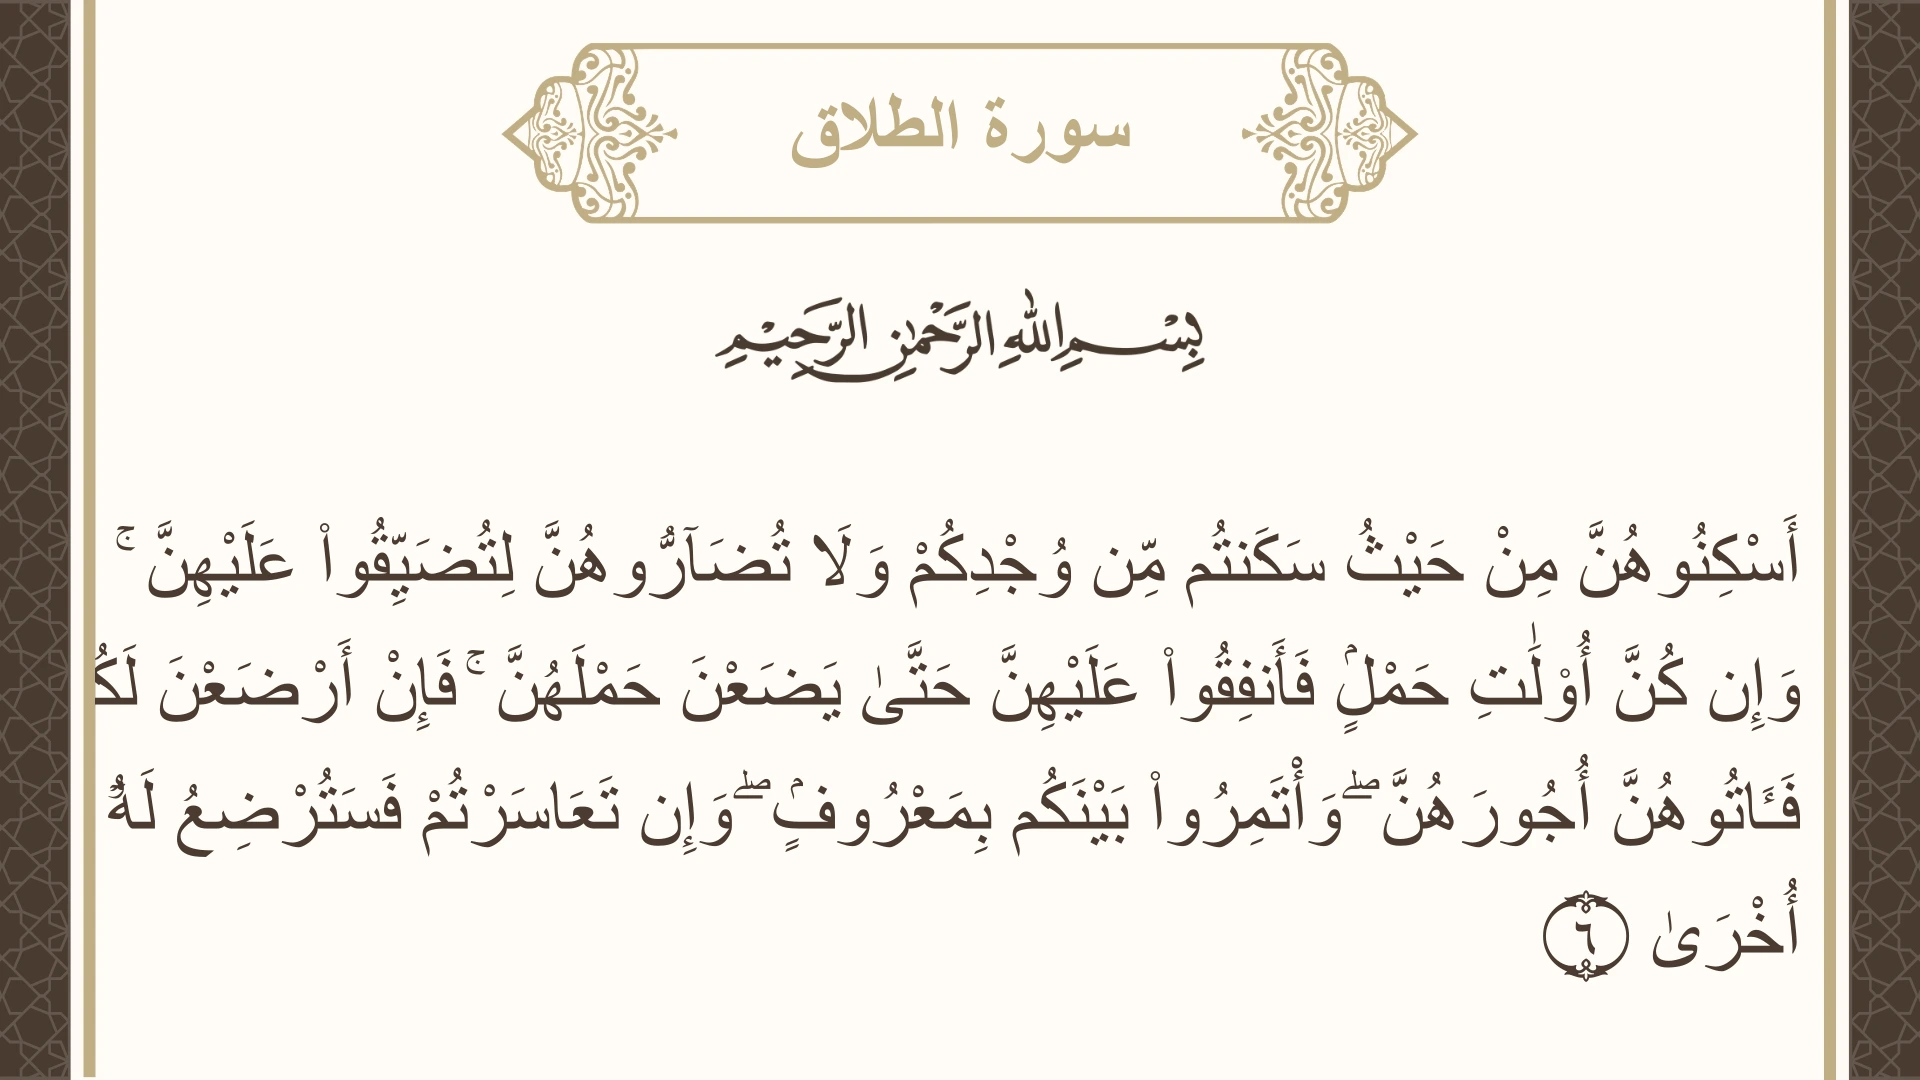 سورة الطلاق
بِسْمِ اللهِ الرَّحْمٰنِ الرَّحِيْمِ
أَسْكِنُوهُنَّ مِنْ حَيْثُ سَكَنتُم مِّن وُجْدِكُمْ وَلَا تُضَآرُّوهُنَّ لِتُضَيِّقُوا۟ عَلَيْهِنَّ ۚ
وَإِن كُنَّ أُو۟لَٰتِ حَمْلٍۢ فَأَنفِقُوا۟ عَلَيْهِنَّ حَتَّىٰ يَضَعْنَ حَمْلَهُنَّ ۚ فَإِنْ أَرْضَعْنَ
فَـَٔاتُوهُنَّ أُجُورَهُنَّ ۖ وَأْتَمِرُوا۟ بَيْنَكُم بِمَعْرُوفٍۢ ۖ وَإِن تَعَاسَرْتُمْ فَسَتُرْضِعُ لَهُۥٓ
أُخْرَىٰ ٦